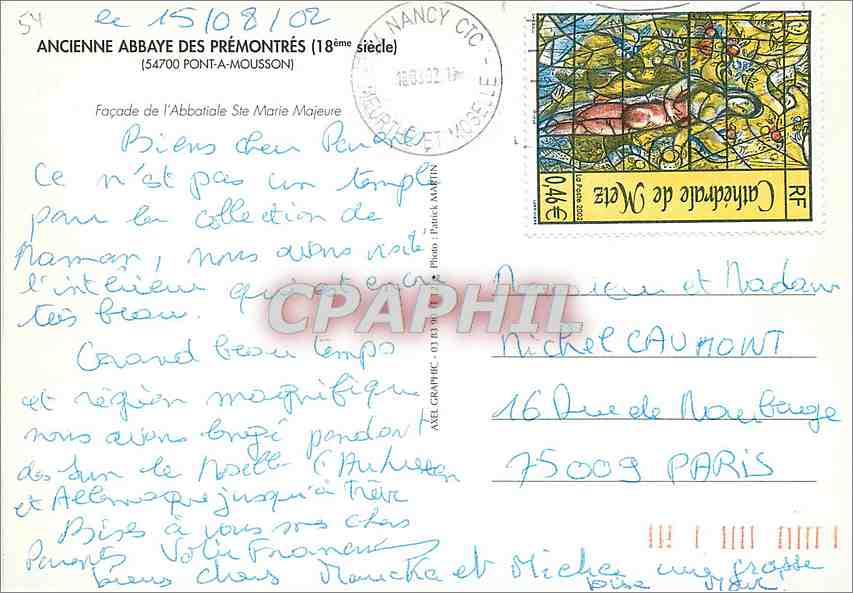 54
le 15/08/02
ANCIENNE ABBAYE DES PRÉMONTRÉS (18ème siècle)
(54700 PONT-A-MOUSSON)
Façade de l'Abbatiale Ste Marie Majeure
NANCY CTC
MEURTHE ET MOSELLE
Cathédrale de Metz
RF
0,46€
La Poste 2002
Biens chers Parents
Ce n'est pas un temple
pour la collection de
Maman, nous avons visité
l'intérieur qui est encor
très beau.
Grand beau temps
et région magnifique
nous avons longé pendant
la Moselle
et Allemagne jusqu'à Trêve
Bises à vous mes chers
Parents Votre
biens chers et Michel une grosse
bise
AXEL GRAPHIC - 03 83 90 • Photo : Patrick MARTIN
CPAPHIL
Monsieur et Madam
Michel CAUMONT
16 Rue de Maubeuge
75009 PARIS